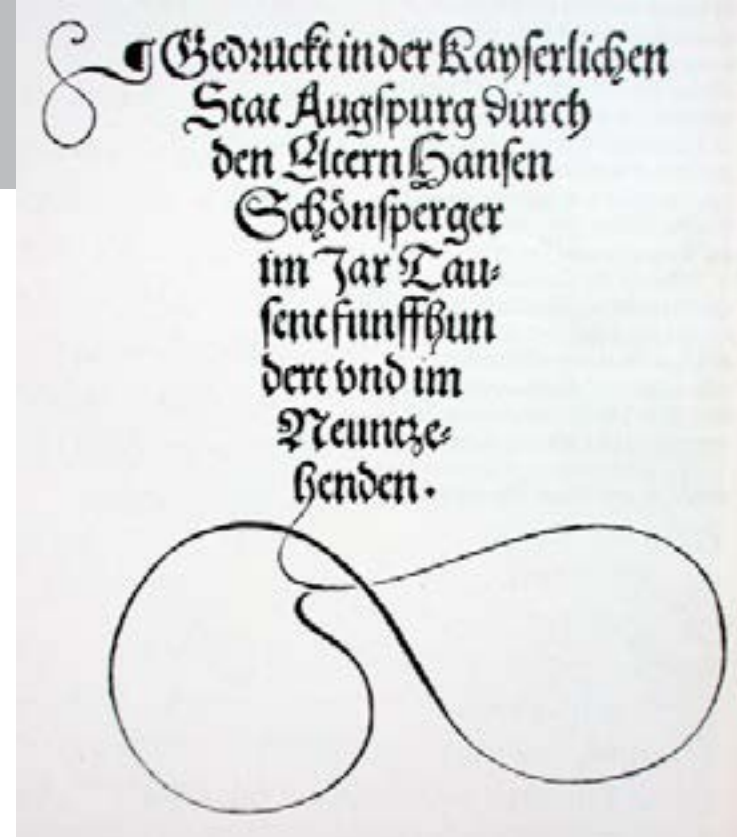 ¶ Gedruckt in der Kayſerlichen
Stat Augſpurg durch
den Eltern Hanſen
Schönſperger
im Jar Tau⸗
ſent funffhun
dert vnd im
Neuntze⸗
henden.